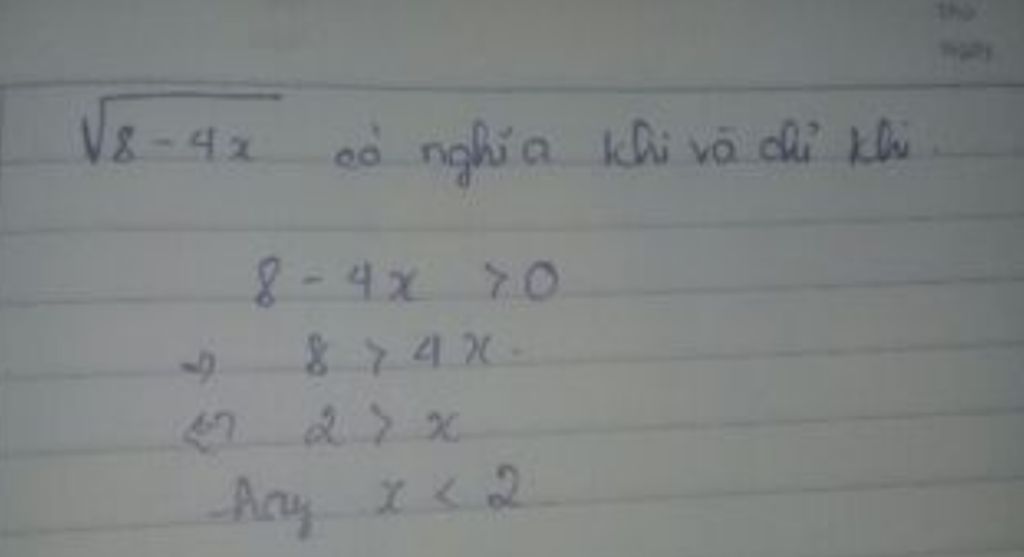 √8 - 4x có nghĩa khi và chỉ khi.
8 - 4x > 0
=> 8 > 4x.
<=> 2 > x
Hay x < 2